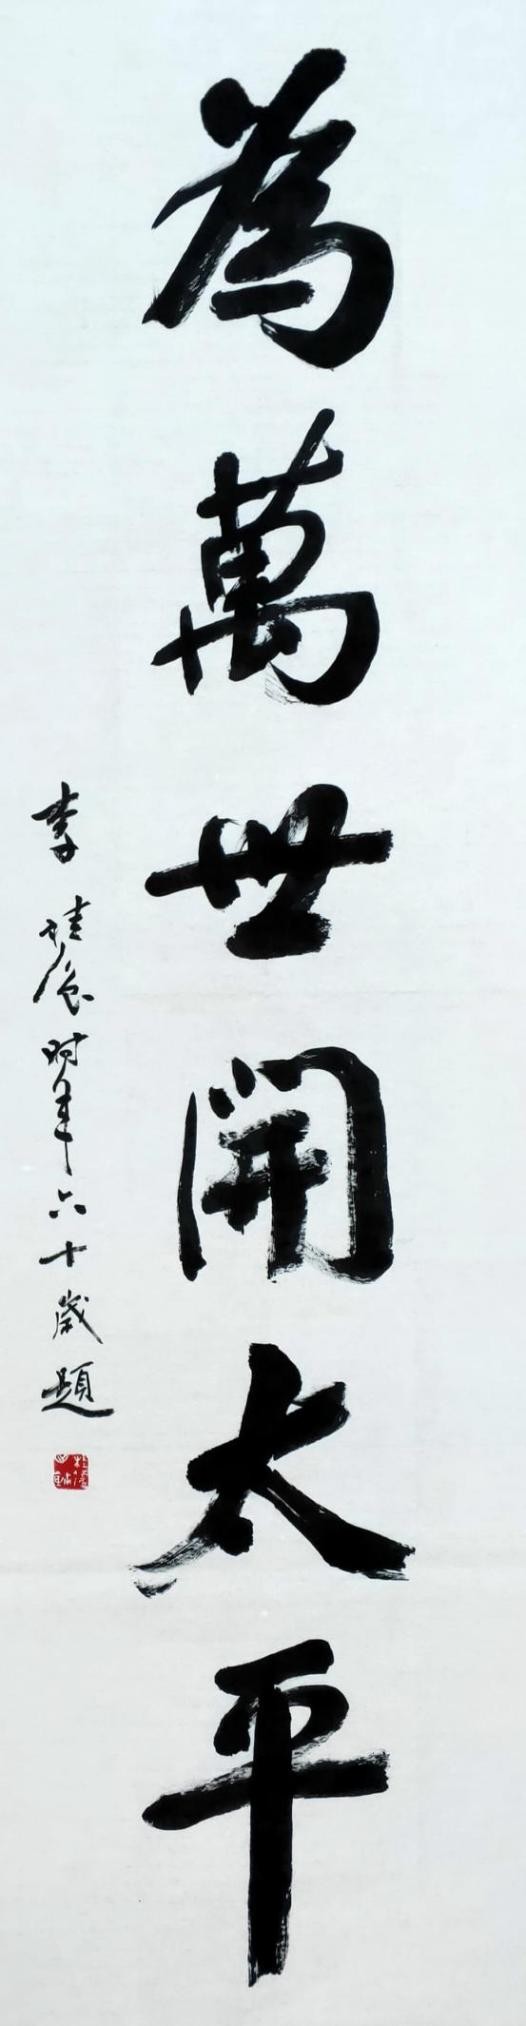 為萬世開太平
李 時年六十歲題